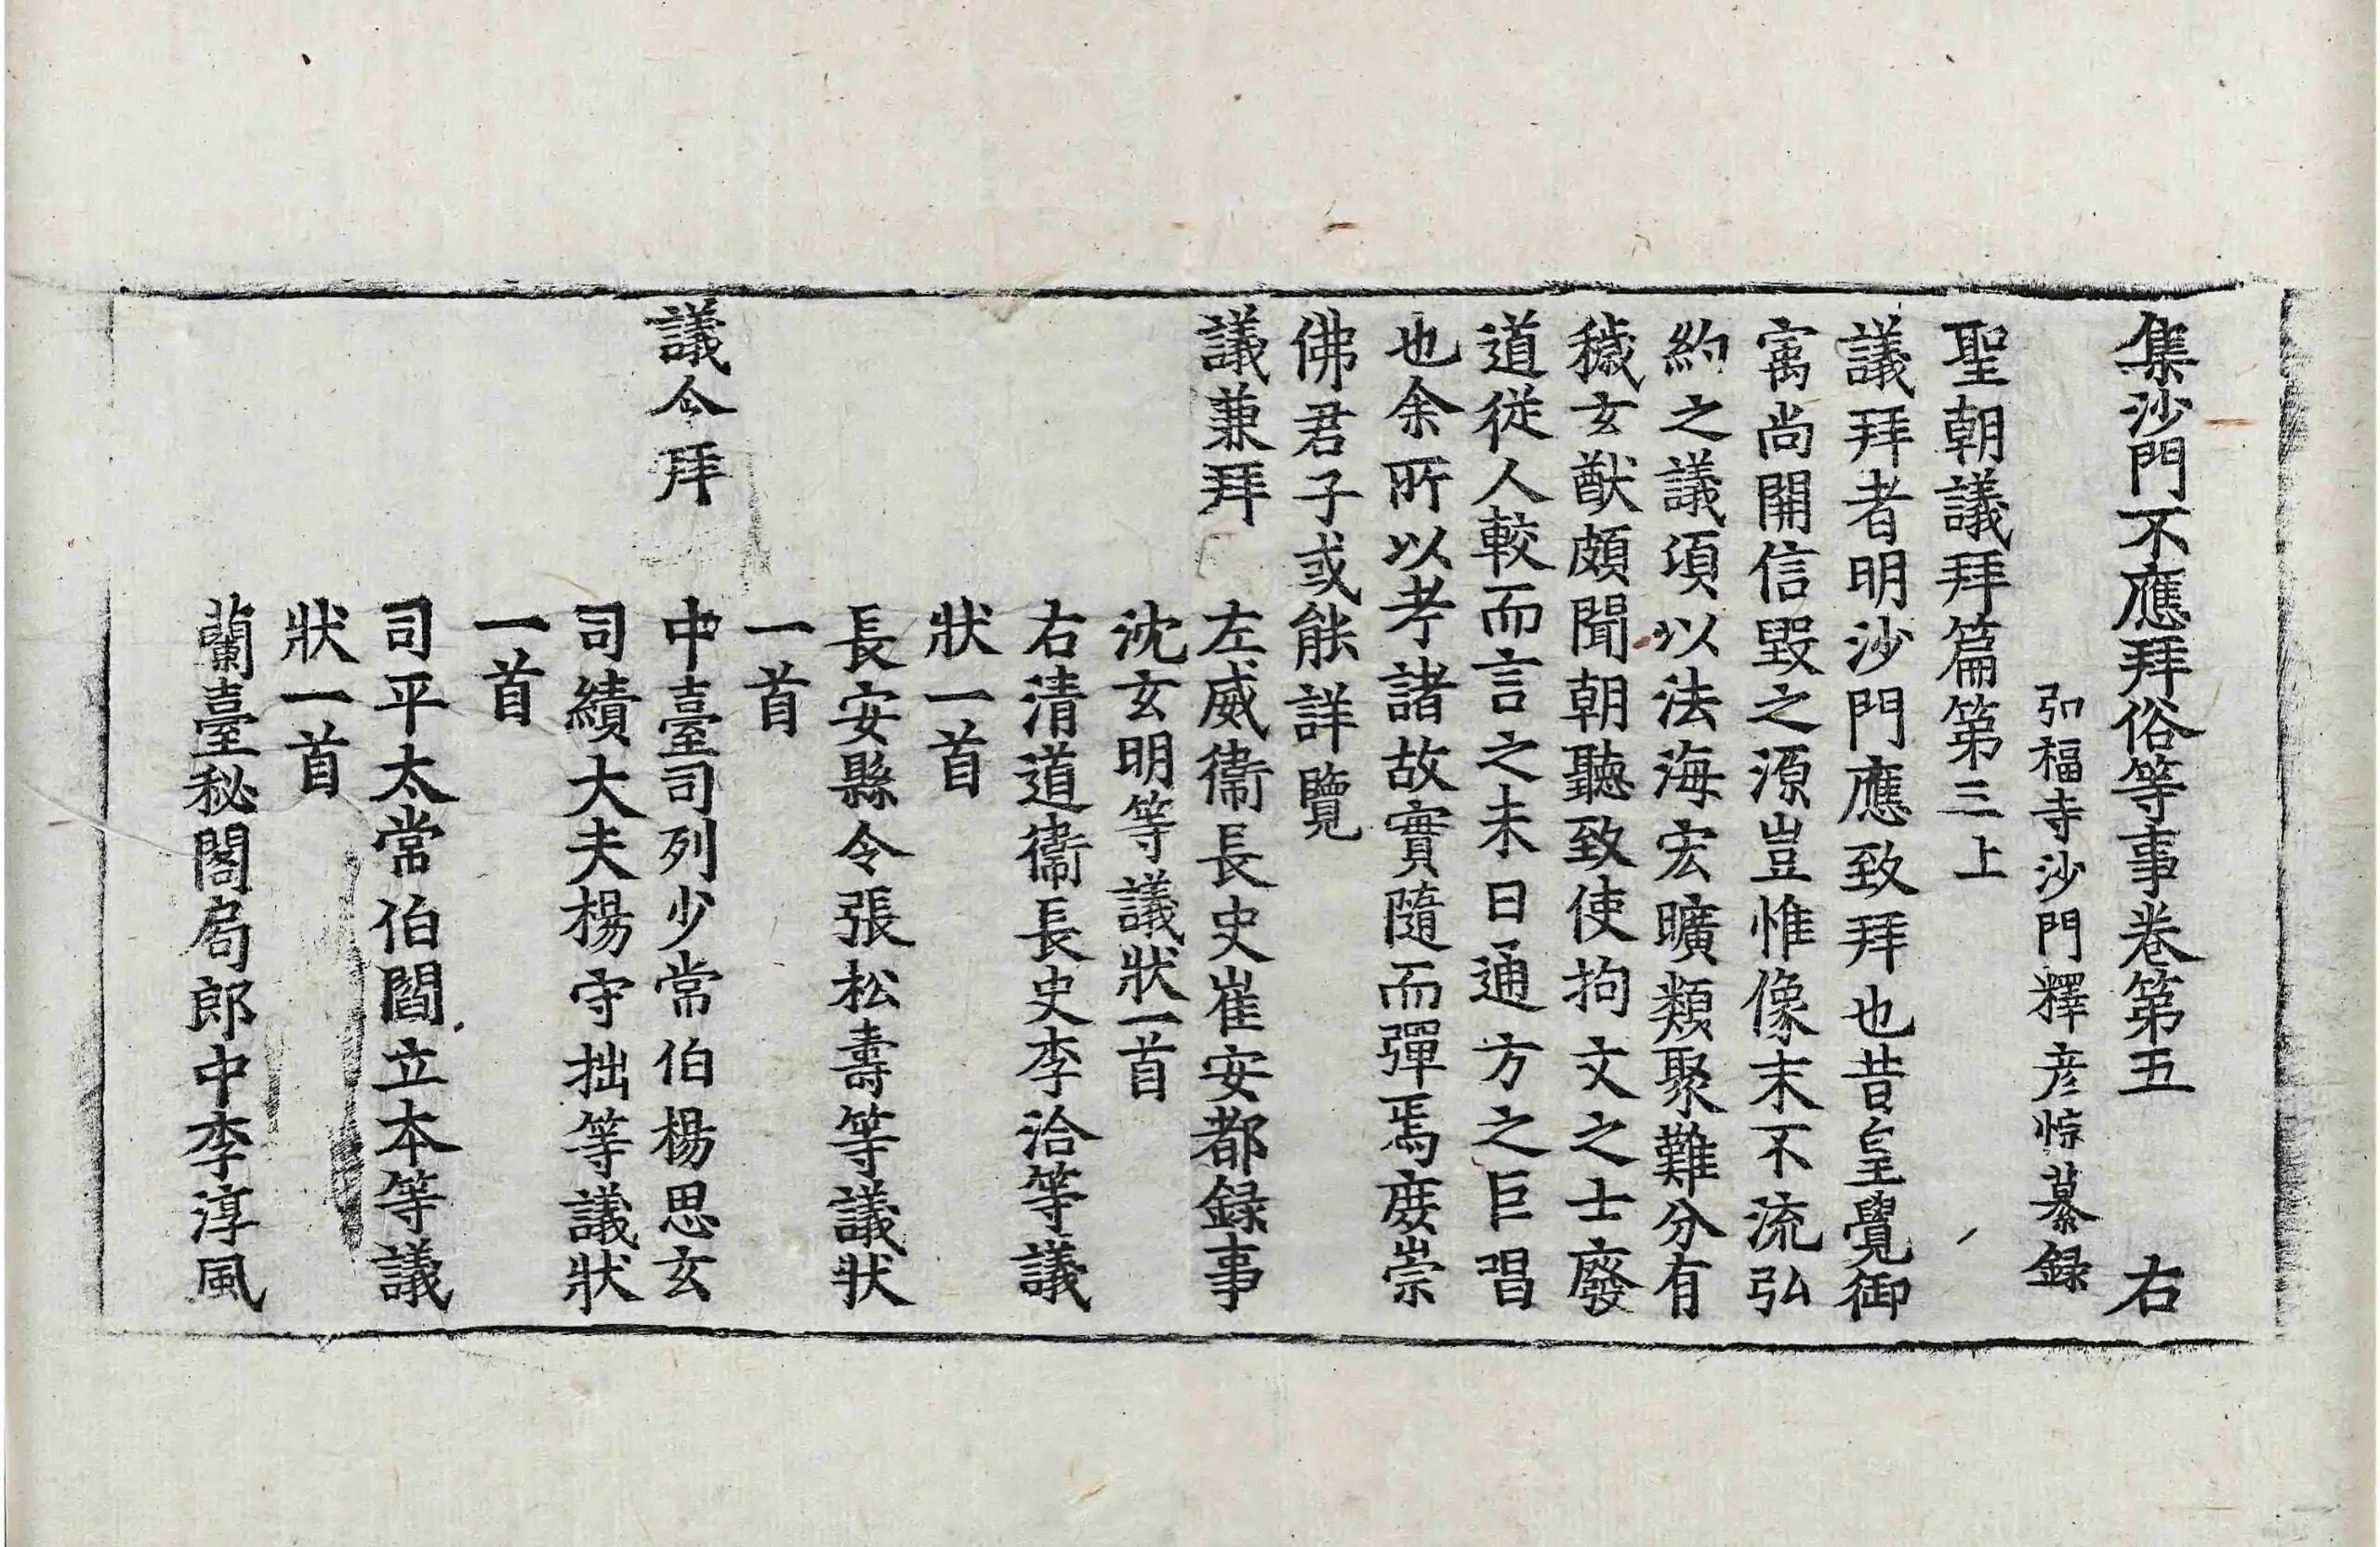 集沙門不應拜俗等事卷第五　右
弘福寺沙門釋彦悰纂録
聖朝議拜篇第三上
議拜者明沙門應致拜也昔皇覺御
寓尚開信毀之源豈惟像末不流弘
約之議頃以法海宏曠類聚難分有
穢玄猷頗聞朝聽致使拘文之士廢
道從人較而言之未曰通方之巨唱
也余所以考諸故實隨而彈焉庻崇
佛君子或能詳覽
議兼拜
左威衞長史崔安都録事
沈玄明等議狀一首
右清道衞長史李洽等議
狀一首
長安縣令張松壽等議狀
一首
議令拜
中臺司列少常伯楊思玄
司績大夫楊守拙等議狀
一首
司平太常伯閻立本等議
狀一首
蘭臺秘閣局郎中李淳風